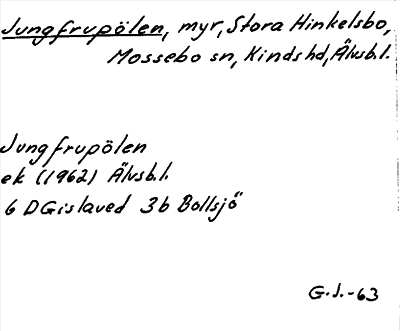 Jungfrupölen, myr, Stora Hinkelsbo,
Mossebo sn, Kinds hd, Älvsb.l.
Jungfrupölen
ek (1962) Älvsb.l.
6 D Gislaved 3b Bollsjö
G.J.-63